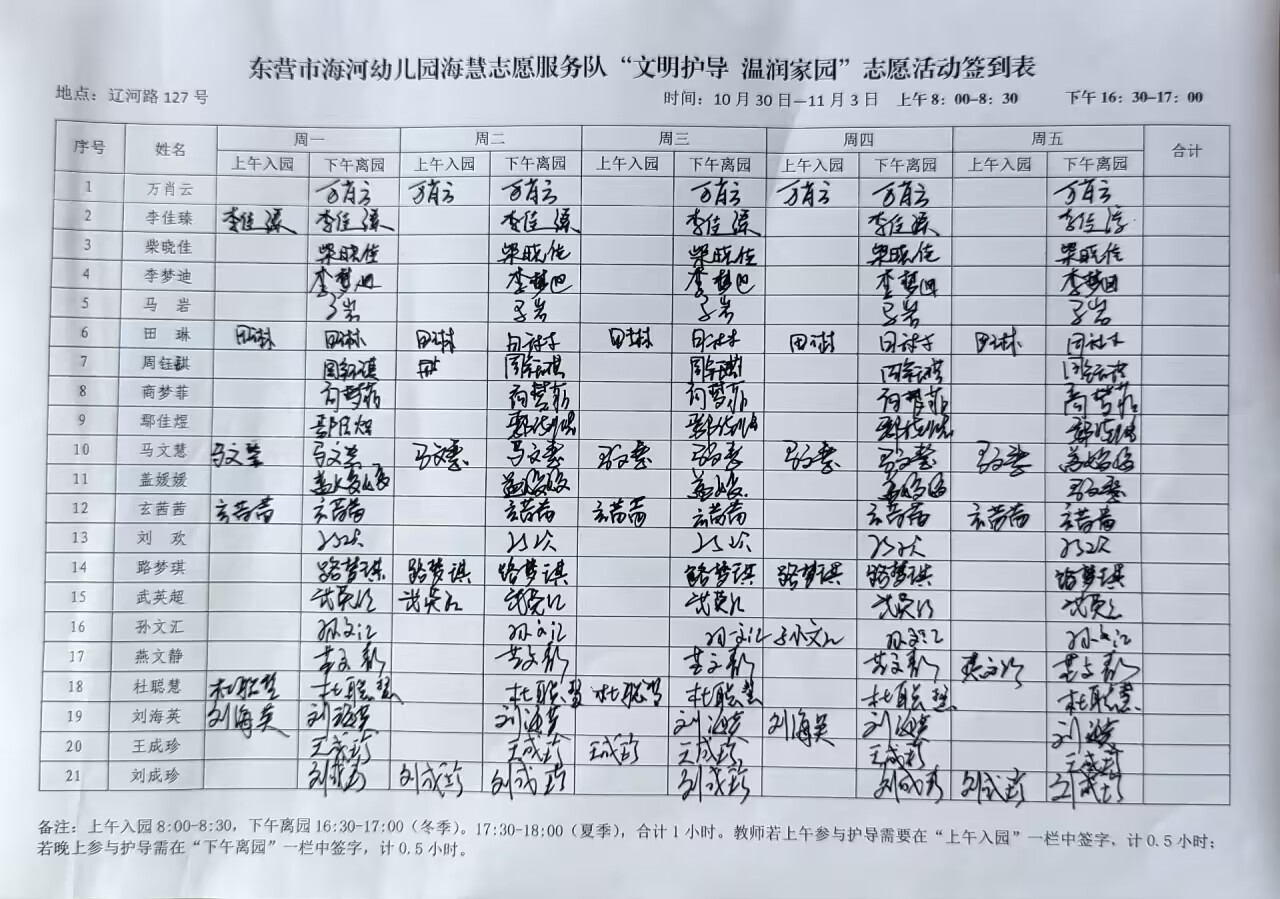 东营市海河幼儿园海慧志愿服务队“文明护导 温润家园”志愿活动签到表
地点：辽河路127号 时间：10月30日—11月3日 上午8：00-8：30 下午16：30-17：00
序号 姓名 周一 周二 周三 周四 周五 合计
上午入园 下午离园 上午入园 下午离园 上午入园 下午离园 上午入园 下午离园 上午入园 下午离园
1 万肖云 万肖云 万肖云 万肖云 万肖云 万肖云 万肖云 万肖云
2 李佳臻 李佳臻 李佳臻 李佳臻 李佳臻 李佳臻 李佳臻
3 柴晓佳 柴晓佳 柴晓佳 柴晓佳 柴晓佳 柴晓佳
4 李梦迪 李梦迪 李梦迪 李梦迪 李梦迪 李梦迪
5 马 岩 马岩 马岩 马岩 马岩 马岩
6 田 琳 田琳 田琳 田琳 田琳 田琳 田琳 田琳 田琳 田琳 田琳
7 周钰琪 周钰琪 周钰琪 周钰琪 周钰琪 周钰琪
8 商梦菲 商梦菲 商梦菲 商梦菲 商梦菲 商梦菲
9 鄢佳煜 鄢佳煜 鄢佳煜 鄢佳煜 鄢佳煜 鄢佳煜
10 马文慧 马文慧 马文慧 马文慧 马文慧 马文慧 马文慧 马文慧 马文慧 马文慧 盖媛媛
11 盖媛媛 盖媛媛 盖媛媛 盖媛 盖媛媛 马文慧
12 玄茜茜 玄茜茜 玄茜茜 玄茜茜 玄茜茜 玄茜茜 玄茜茜 玄茜茜 玄茜茜
13 刘 欢 刘欢 刘欢 刘欢 刘欢 刘欢
14 路梦琪 路梦琪 路梦琪 路梦琪 路梦琪 路梦琪 路梦琪 路梦琪
15 武英超 武英超 武英超 武英超 武英超 武英超 武英超
16 孙文汇 孙文汇 孙文汇 孙文汇 孙文汇 孙文汇 孙文汇
17 燕文静 燕文静 燕文静 燕文静 燕文静 燕文静 燕文静
18 杜聪慧 杜聪慧 杜聪慧 杜聪慧 杜聪慧 杜聪慧 杜聪慧 杜聪慧
19 刘海英 刘海英 刘海英 刘海英 刘海英 刘海英 刘海英 刘海英
20 王成珍 王成珍 王成珍 王成珍 王成珍 王成珍 王成珍
21 刘成珍 刘成珍 刘成珍 刘成珍 刘成珍 刘成珍 刘成珍 刘成珍
备注：上午入园8:00-8:30，下午离园16:30-17:00（冬季）。17:30-18:00（夏季），合计1小时。教师若上午参与护导需要在“上午入园”一栏中签字，计0.5小时；
若晚上参与护导需在“下午离园”一栏中签字，计0.5小时。